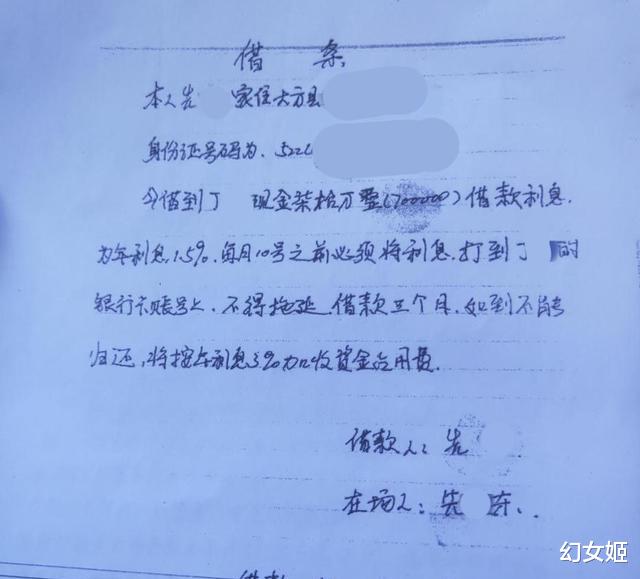 借条
本人先 家住大方县
身份证号码为.522
今借到丁 现金柒拾万零(700000)借款利息.
为年利息1.5%.每月10号之前必须将利息.打到丁 的
银行卡账号上.不得拖延.借款三个月.如到不能
归还,将按年利息3%加收资金占用费.
借款人:先
在场人:先 陈.
幻女姬